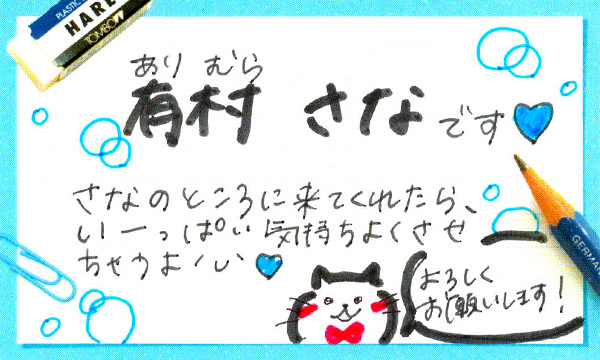 PLASTIC
HARE
TOMBOW
ありむら
有村 さなです
さなのところに来てくれたら、
いーっぱい気持ちよくさせ
ちゃうよ〜い
よろしく
お願いします!
GERMAN